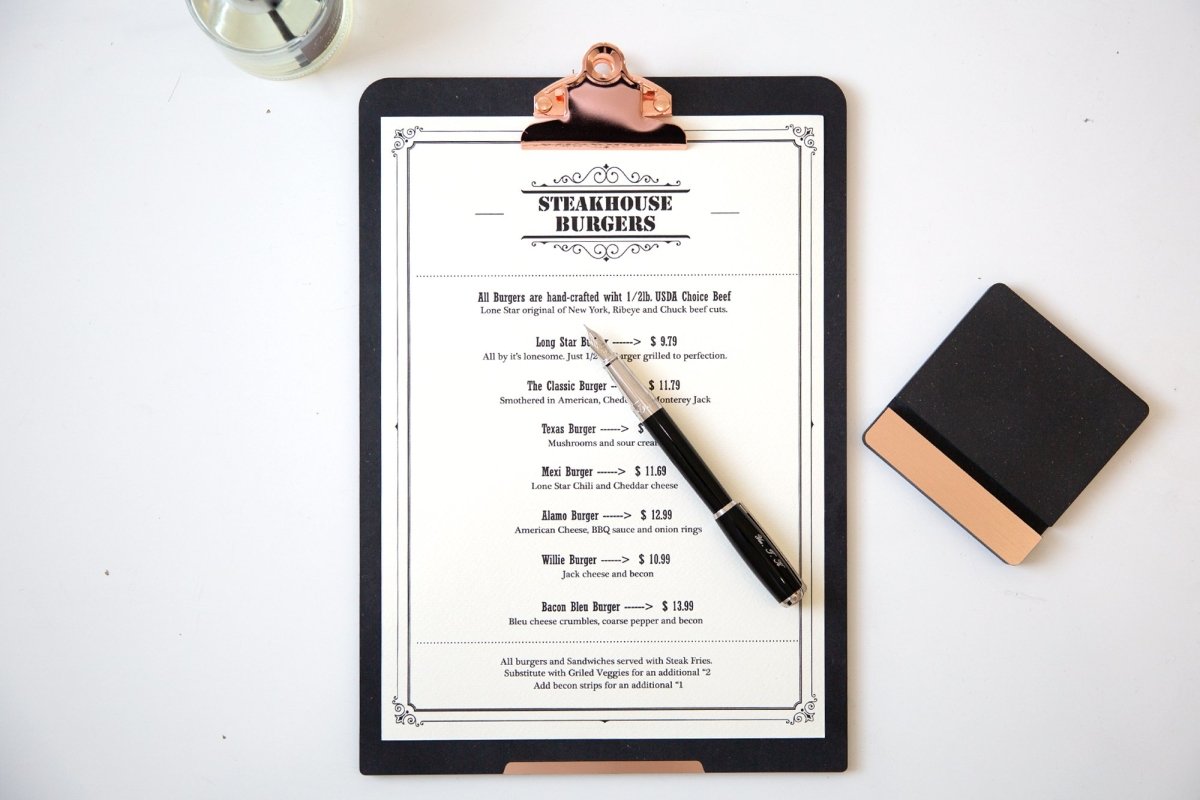 STEAKHOUSE
BURGERS
All Burgers are hand-crafted wiht 1/2lb. USDA Choice Beef
Lone Star original of New York, Ribeye and Chuck beef cuts.
Long Star ------> $ 9.79
All by it's lonesome. Just grilled to perfection.
The Classic Burger -- $ 11.79
Smothered in American, Monterey Jack
Texas Burger ------> $
Mushrooms and sour
Mexi Burger ------> $ 11.69
Lone Star Chili and Cheddar cheese
Alamo Burger ------> $ 12.99
American Cheese, BBQ sauce and onion rings
Willie Burger ------> $ 10.99
Jack cheese and becon
Bacon Bleu Burger ------> $ 13.99
Bleu cheese crumbles, coarse pepper and becon
All burgers and Sandwiches served with Steak Fries.
Substitute with Griled Veggies for an additional "2
Add becon strips for an additional "1